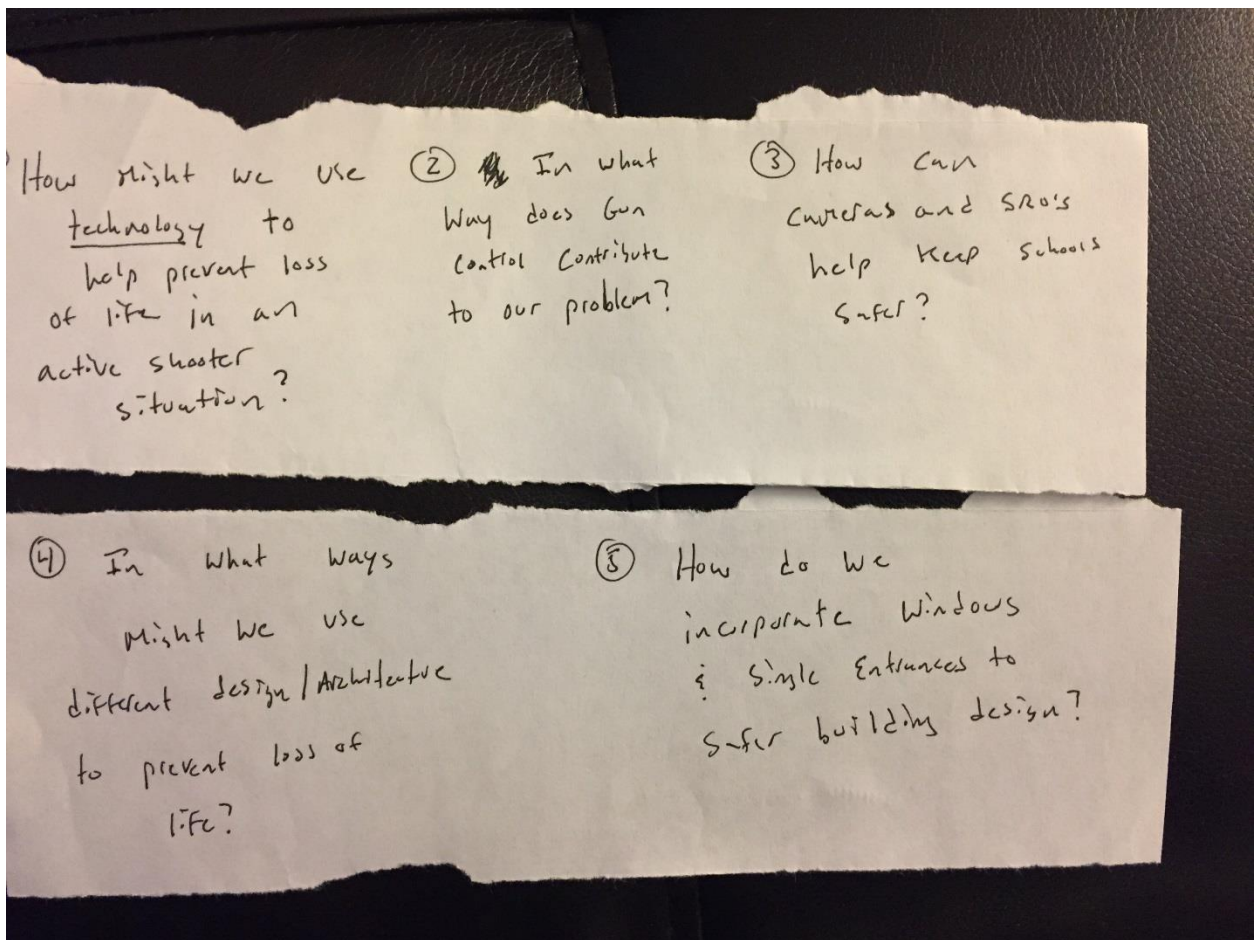 How Might we use
technology to
help prevent loss
of life in an
active shooter
situation?
② In what
Way does Gun
Control Contribute
to our problem?
③ How can
cameras and SRO's
help keep schools
safer?
④ In what ways
Might we use
different design/Architecture
to prevent loss of
life?
⑤ How do we
incorporate Windows
& Single Entrances to
Safer building design?